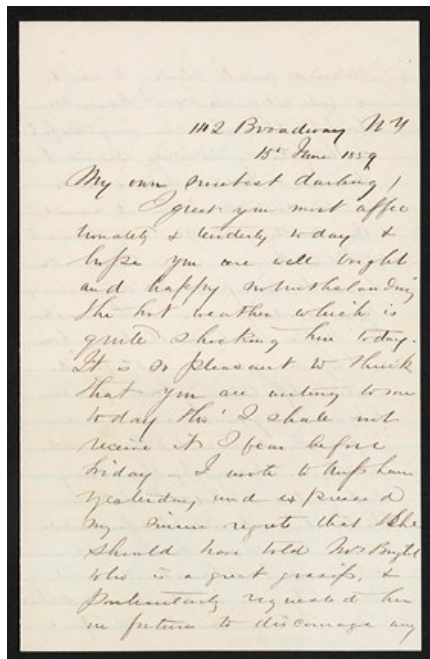 1142 Broadway NY
15th June 1859
My own sweetest darling!
I greet you most affec
tionately & tenderly today &
hope you are well bright
and happy notwithstanding
the hot weather which is
quite shocking here today.
It is so pleasant to think
that you are writing to me
today tho' I shall not
receive it I fear before
Friday I wrote to
yesterday, and expressed
my sincere regrets that she
should have told Mrs
who is a great gossip, &
particularly requested her
in future to discourage any